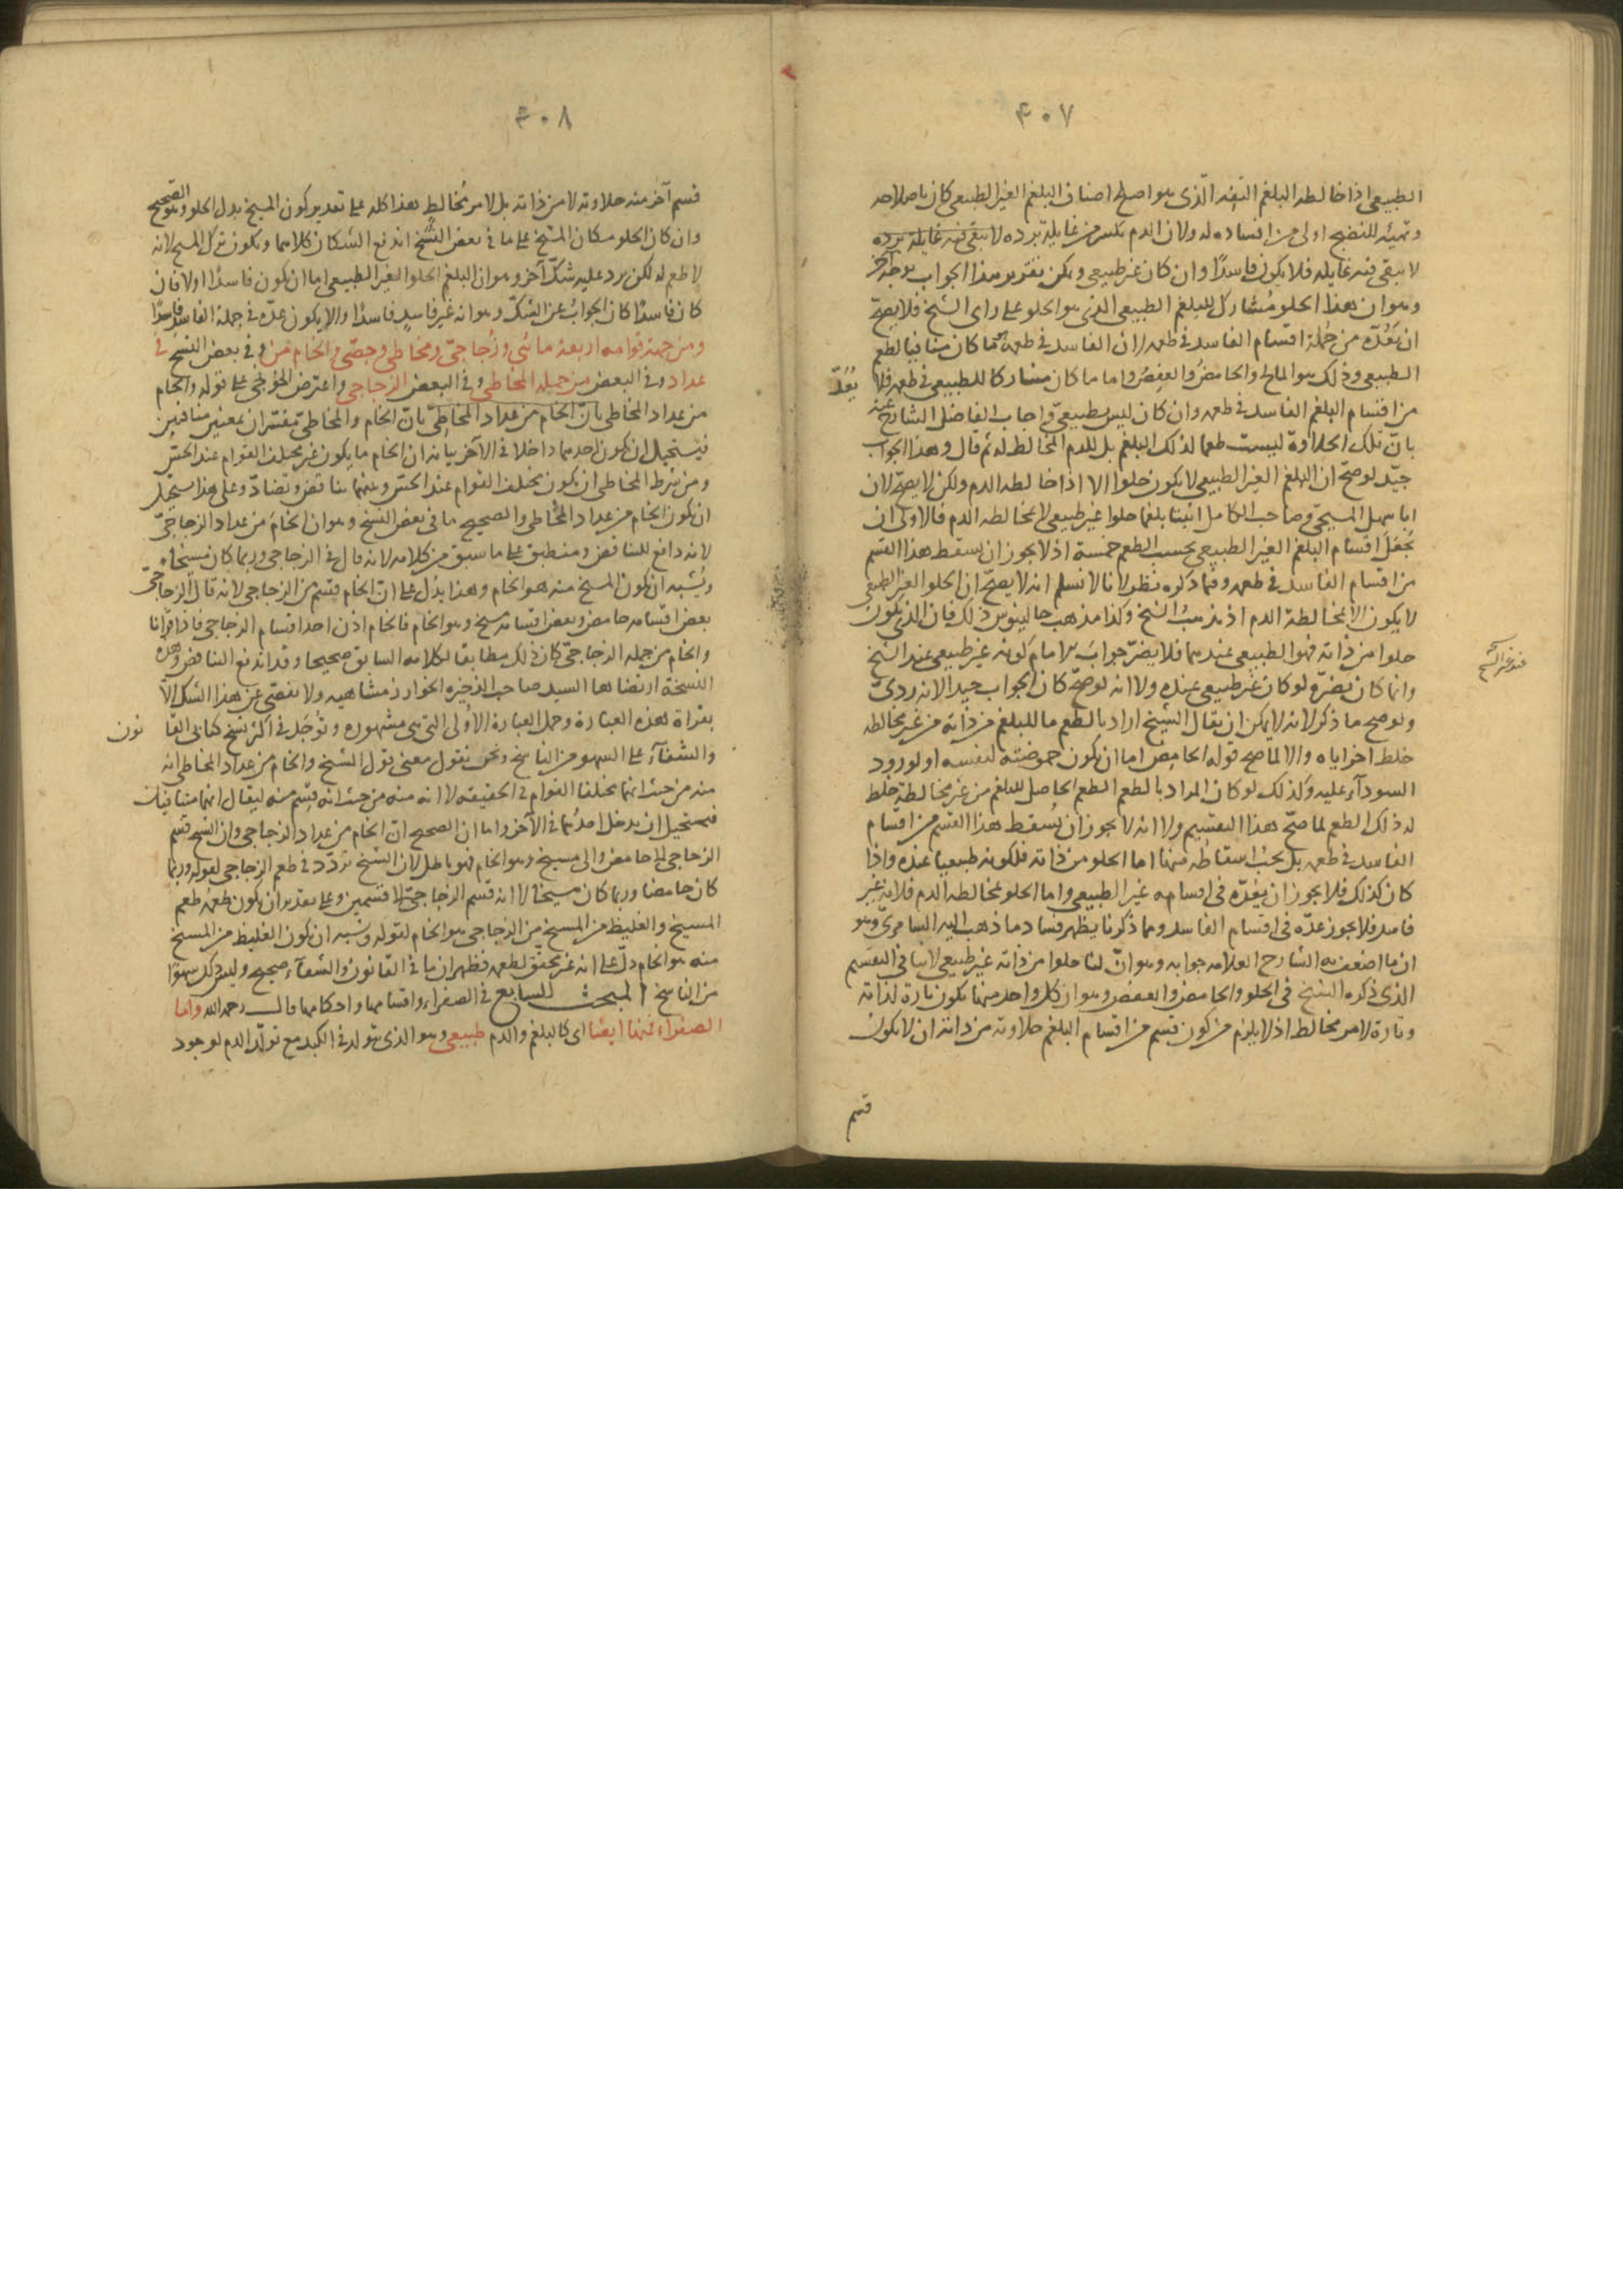 ٤٠٧
الطبيعى اذا خالطه البلغم التفه الّذى هو اصلح اصناف البلغم الغير الطبيعى كان باصلاحه
وتهيئه للنضج اولى من افساده له ولان الدم يكسر من غايلة برده لا يبقى فيه غايلة برده
لا يبقى فيه غايله فلا يكون فاسدًا وان كان غير طبيعى ويمكن تقرير هذا الجواب بوجه آخر
وهو ان هذا الحلو مُشارك للبلغم الطبيعى الذى هو الحلو على راى الشيخ فلا يصحّ
ان يَعُدّه من جُملة اقسام الفاسد فى طعمه لان الفاسد فى طعمه ما كان منافيا لطعم
الطبيعى وذلك هو المالح والحامضُ والعفِصُ واما ما كان مشاركا للطبيعى فى طعمه فلا يُعَدّ
من اقسام البلغم الفاسد فى طعمه وان كان ليس بطبيعىّ واجاب الفاضل الشارح عنه
بانّ تلك الحلاوة ليست طعما لذلك البلغم بل للدم المخالط له ثم قال وهذا الجواب
جيّد لو صحّ ان البلغم الغير الطبيعى لا يكون حلوا الا اذا خالطه الدم ولكن لا يصحّ لان
ابا سهل المسيحىّ صاحب الكامل اثبت بلغما حلوا غير طبيعى لا بمخالطة الدم فالاولى ان
يُجْعَلَ اقسام البلغم الغير الطبيعى بحسب الطعم خمسة اذ لا يجوز ان يسقط هذا القسم
من اقسام الفاسد فى طعمه وفيما ذكره نظر لانا لا نسلم انه لا يصحّ ان الحلو الغير الطبيعى
لا يكون الا بمخالطة الدم اذ مذهبُ الشيخ وكذا مذهب جالينوس ذلك فان الذى يكون
حلوا من ذاته فهو الطبيعى عندهما فلا يضرّ جوابَ الامام كونه غير طبيعى عند المسيحى
وانما كان يضرّ لو كان غير طبيعى عنده ولا انه لو صحّ كان الجواب جيدا لانه ردىّ
ولو صح ما ذكر لانه لا يمكن ان يقال الشيخ اراد بالطعم ما للبلغم من ذاته من غير مخالطه
خلط آخر اياه والا لما صح قوله الحامض اما ان يكون حموضته لنفسه او لورود
السودآء عليه وكذلك لو كان المراد بالطعم الطعم الحاصل للبلغم من غير مخالطة خلط
له ذلك الطعم لما صحّ هذا التقسيم ولا انه لا يجوز ان يُسقط هذا القسم من اقسام
الفاسد فى طعمه بل يجب اسقاطه منها اما الحلو من ذاته فلكونه طبيعيا عنده واذا
كان كذلك فلا يجوز ان يعُدّه فى اقسامه غير الطبيعى واما الحلو بمخالطه الدم فلانه غير
فاسد فلا يجوز عدّه فى اقسام الفاسد ومما ذكرنا يظهر فساد ما ذهب اليه السامرىّ وهو
ان ما اضعف به الشارح العلامه جوابه وهو انّ لنا حلوا من ذاته غير طبيعى لاينافى التقسيم
الذى ذكره الشيخ فى الحلو والحامض والعفص وهو ان كل واحد منها يكون تارة لذاته
وتارة لامر مخالط اذ لا يلزم من كون قسم من اقسام البلغم حلاوته من ذاته ان لا يكون
قسم
٤٠٨
قسم آخر منه حلاوته لا من ذاته بل لامر مُخالطٍ هذا كله على تقدير كون المسيخ بدل الحلو وهو الصحيح
وان كان الحلو مكان المسيخ على ما فى بعض النُسَخ اندفع الشكان كلاهما ويكون ترك المسيخ لانه
لا طعم له لكن يرد عليه شكّ آخر وهو ان البلغم الحلو الغير الطبيعى اما ان يكون فاسدًا اولا فان
كان فاسدًا كان الجوابُ عن الشكّ وهو انه غير فاسدٍ فاسدًا والا يكون عدّه فى جملة الفاسد فاسدًا
ومن جهة قوامه اربعة مائى وزُجاجىّ ومخاطى وجصّى والخام من وفى بعض النسخ فى
عداد وفى البعض من جمله المخاطى وفى البعض الزجاجى واعترض الخونجى على قوله والخام
من عداد المخاطى بانّ الخام من عداد المخاطىّ بانّ الخام والمخاطىّ مفسّران بمعنيين متنافيين
فيستحيل ان يكون احدهما داخلا فى الآخر بيانه ان الخام ما يكون غير مختلف القوام عند الحسّ
ومن شرط المخاطى ان يكون مختلف القوام عند الحسّ وبينهما تناقض وتضادّ وعلى هذا يستحيل
ان يكون الخام من عداد المُخاطى والصحيح ما فى بعض النسخ وهو ان الخامَ من عداد الزجاجىّ
لانه دافع للتناقض ومنطبق على ما سبق من كلامه لانه قال فى الزجاجى وربما كان مسيخا
ويُشبه ان يكون المسيخ منه هو الخام وهذا يدُل على انّ الخام قسم من الزجاجى لانه قال الزجاجىّ
بعض اقسامه حامض وبعض اقسامه مسيخ وهو الخام فالخام اذن احد اقسام الزجاجى فاذا قرأنا
والخام من جمله الزجاجىّ كان ذلك مطابقا لكلامه السابق صحيحا وقد اندفع التناقض وهذه
النسخة ارتضاها السيد صاحب الذخيره الخوارزمشاهيه ولا تفصّى عن هذا الشك الّا
بقراة هذه العبارة وحمل العبارة الاُولى التى هى مشهوره وتُوجَد فى اكثر نسخ كتابى القانون
والشفآء على السهو من الناسخ ونحن نقول معنى قول الشيخ والخام من عداد المخاطى انه
منه من حيث انهما مختلفا القوام فى الحقيقه لا انه منه من حيث انه قِسْم منه ليقال انهما متنافيان
فيستحيل ان يدخل احدُهما فى الآخر واما ان الصحيح انّ الخام من عداد الزجاجى وان الشيخ قسّم
الزجاجى الى حامض والى مسيخ وهو الخام فهو باطل لان الشيخ تردّد فى طعم الزجاجى لقوله وربما
كان حامضا وربما كان مسيخا لا انه قسم الزجاجىّ الى قسمين وعلى تقدير ان يكون طعمُه طعم
المسيخ والغليظ من المسيخ من الزجاجى هو الخام لقوله ويشبه ان يكون الغليظ من المسيخ
منه هو الخام دلّ على انه غير محقق لطعمه فظهر ان ما فى القانون والشفآء صحيح وليس ذلك سهوًا
من الناسخ المبحث السابع فى الصفراء واقسامها واحكامها قال رحمه الله واما
الصفراء فمنها ايضا اى كالبلغم والدم طبيعى وهو الذى يتولد فى الكبد مع تولّد الدم لوجود